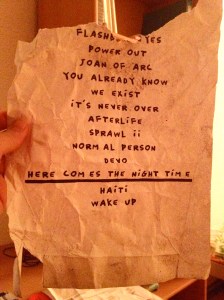 FLASHBULB EYES
POWER OUT
JOAN OF ARC
YOU ALREADY KNOW
WE EXIST
iT'S NEVER OVER
AFTERLIFE
SPRAWL ii
NORMAL PERSON
DEVO
HERE COMES THE NIGHT TIME
HAiTi
WAKE UP